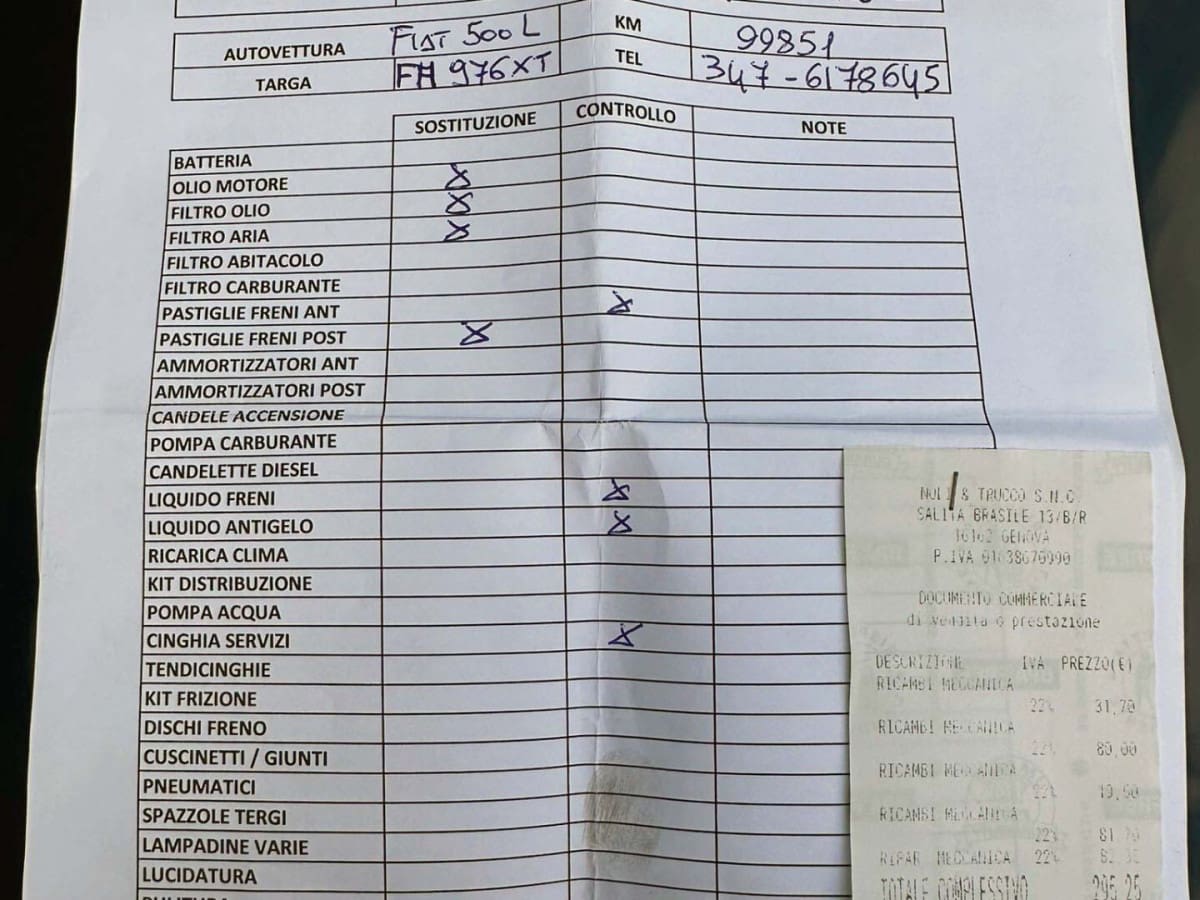 AUTOVETTURA FIAT 500 L KM 99851
TARGA FH 976XT TEL 347-6178645
SOSTITUZIONE CONTROLLO NOTE
BATTERIA
OLIO MOTORE X
FILTRO OLIO X
FILTRO ARIA X
FILTRO ABITACOLO
FILTRO CARBURANTE
PASTIGLIE FRENI ANT X
PASTIGLIE FRENI POST X
AMMORTIZZATORI ANT
AMMORTIZZATORI POST
CANDELE ACCENSIONE
POMPA CARBURANTE
CANDELETTE DIESEL
LIQUIDO FRENI X
LIQUIDO ANTIGELO X
RICARICA CLIMA
KIT DISTRIBUZIONE
POMPA ACQUA
CINGHIA SERVIZI X
TENDICINGHIE
KIT FRIZIONE
DISCHI FRENO
CUSCINETTI / GIUNTI
PNEUMATICI
SPAZZOLE TERGI
LAMPADINE VARIE
LUCIDATURA
NOLI & TRUCCO S.N.C.
SALITA BRASILE 13/B/R
16162 GENOVA
P.IVA 01638670990
DOCUMENTO COMMERCIALE
di vendita o prestazione
DESCRIZIONE IVA PREZZO(€)
RICAMBI MECCANICA
22% 31,70
RICAMBI MECCANICA
22% 80,00
RICAMBI MECCANICA
22% 19,50
RICAMBI MECCANICA
22% 81,70
RIPAR MECCANICA 22%
TOTALE COMPLESSIVO 295,25